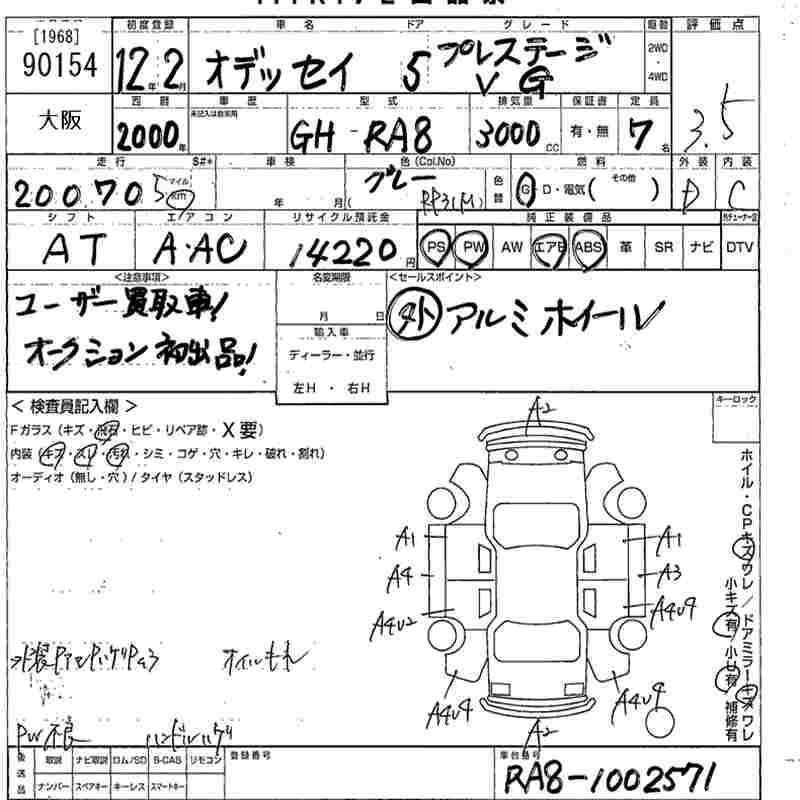 [1968]
90154
初度登録 車名 ドア グレード 駆動 評価点
12年2月 オデッセイ 5 プレステージ VG 2WD・4WD 3.5
大阪
西暦 車歴 型式 排気量 保証書 定員
2000年 未記入は自家用 GH-RA8 3000cc 有・無 7名
外装 内装
D C
走行 S#* 車検 色(Col.No) 色替 燃料
200705 マイル Km 年 月( グレー G・D・電気( その他 )
シフト エアコン リサイクル預託金 純正装備品
AT A・AC 14220円 PS PW AW エアB ABS 革 SR ナビ DTV
<注意事項> 名変期限 <セールスポイント>
ユーザー買取車!
オークション初出品!
月 日
輸入車
ディーラー・並行
左H・右H
外 アルミホイール
<検査員記入欄> キーロック
Fガラス(キズ・飛石・ヒビ・リペア跡・X要)
内装(キズ・スレ・汚れ・シミ・コゲ・穴・キレ・破れ・割れ)
オーディオ(無し・穴)/タイヤ(スタッドレス)
A2
A1 A1
A4 A3
A4U2 A4U9
A4U9 A4U9
A2
ホイル・CPキズワレ/ドアミラーキズワレ
小キズ有/小U有/補修有
オイルもれ
PW不良 ハンドルハゲ
後送品 取説 ナビ取説 ロム/SD B-CAS リモコン 登録番号 車台番号
ナンバー スペアキー キーレス スマートキー RA8-1002571